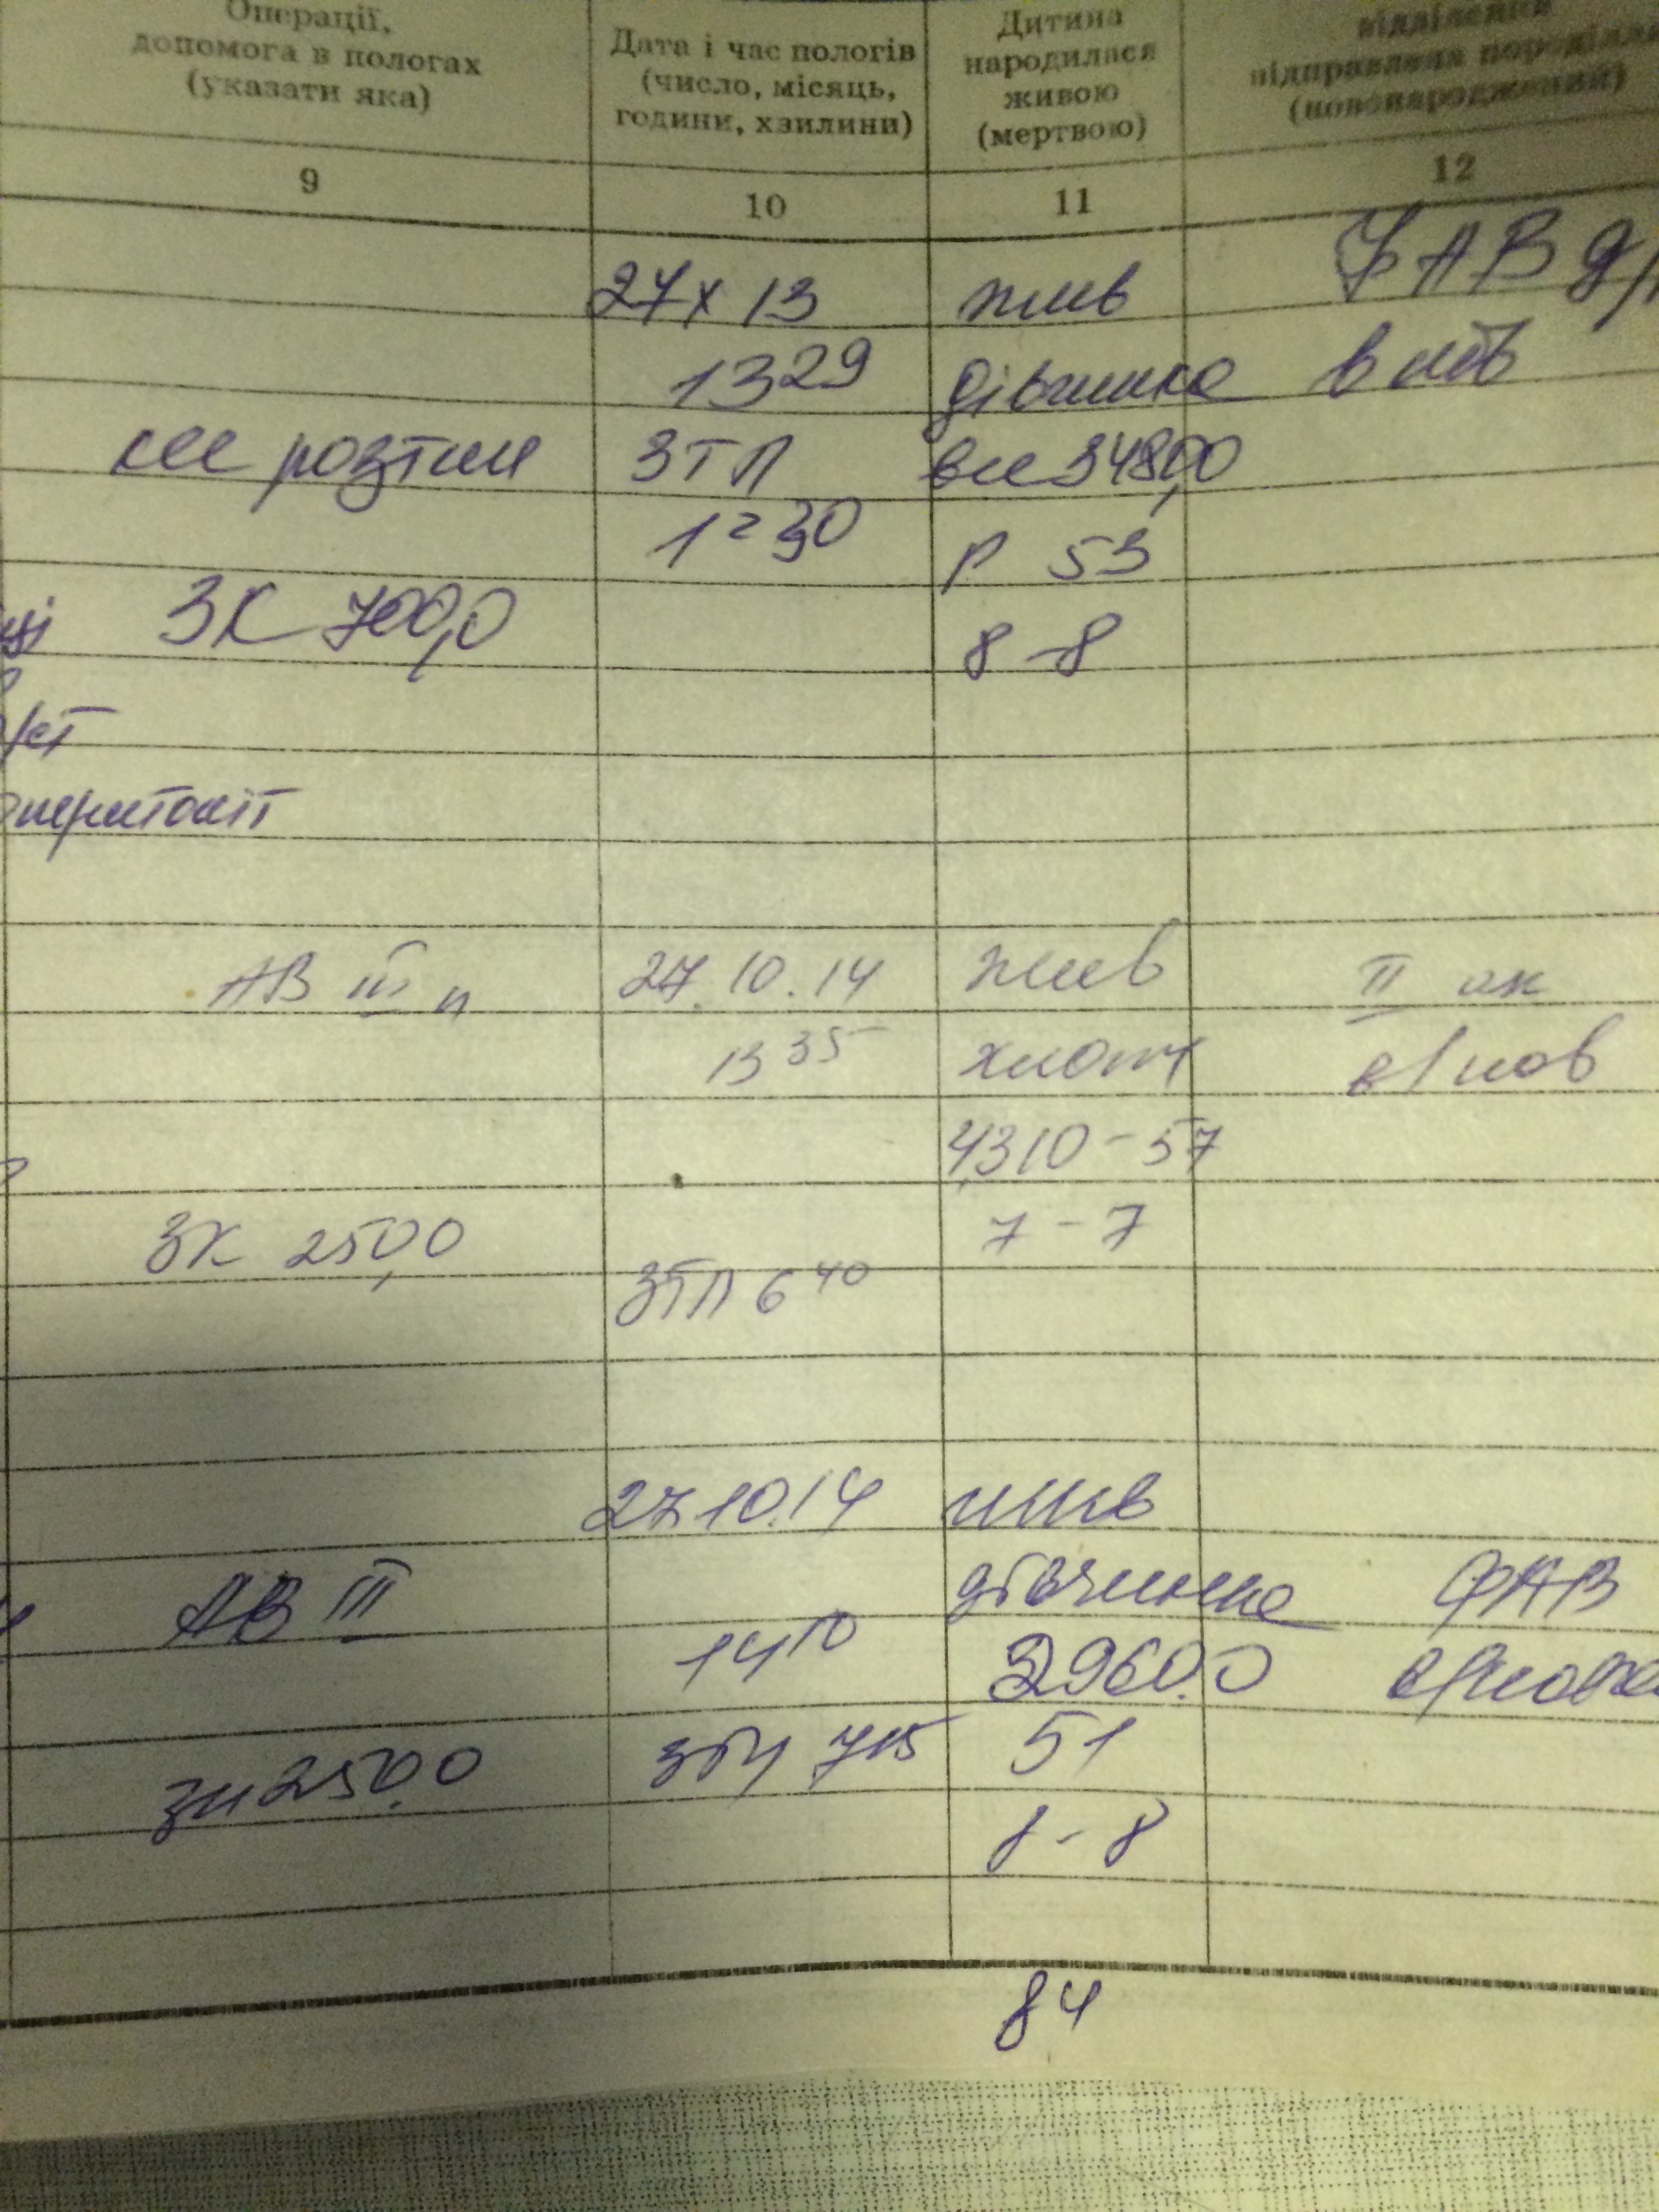 Операції,
допомога в пологах
(указати яка)
Дата і час пологів
(число, місяць,
години, хвилини)
Дитина
народилася
живою
(мертвою)
відділення
відправлена породілля
(новонароджений)
9
10
11
12
27 X 13
жив
ФАВ
13 29
дівчинка
в
розтин
ЗТЛ
3480,0
30
р 53
ЗК 700,0
8-8
АВ III п
27.10.14
жив
II
13 35
хлопч
в/нов
4310-57
ЗК 250,0
7-7
ЗТЛ 6 40
27.10.14
жив
АВ III
дівчинка
ФАВ
14 10
2960.0
250.0
7 15
51
8-8
84